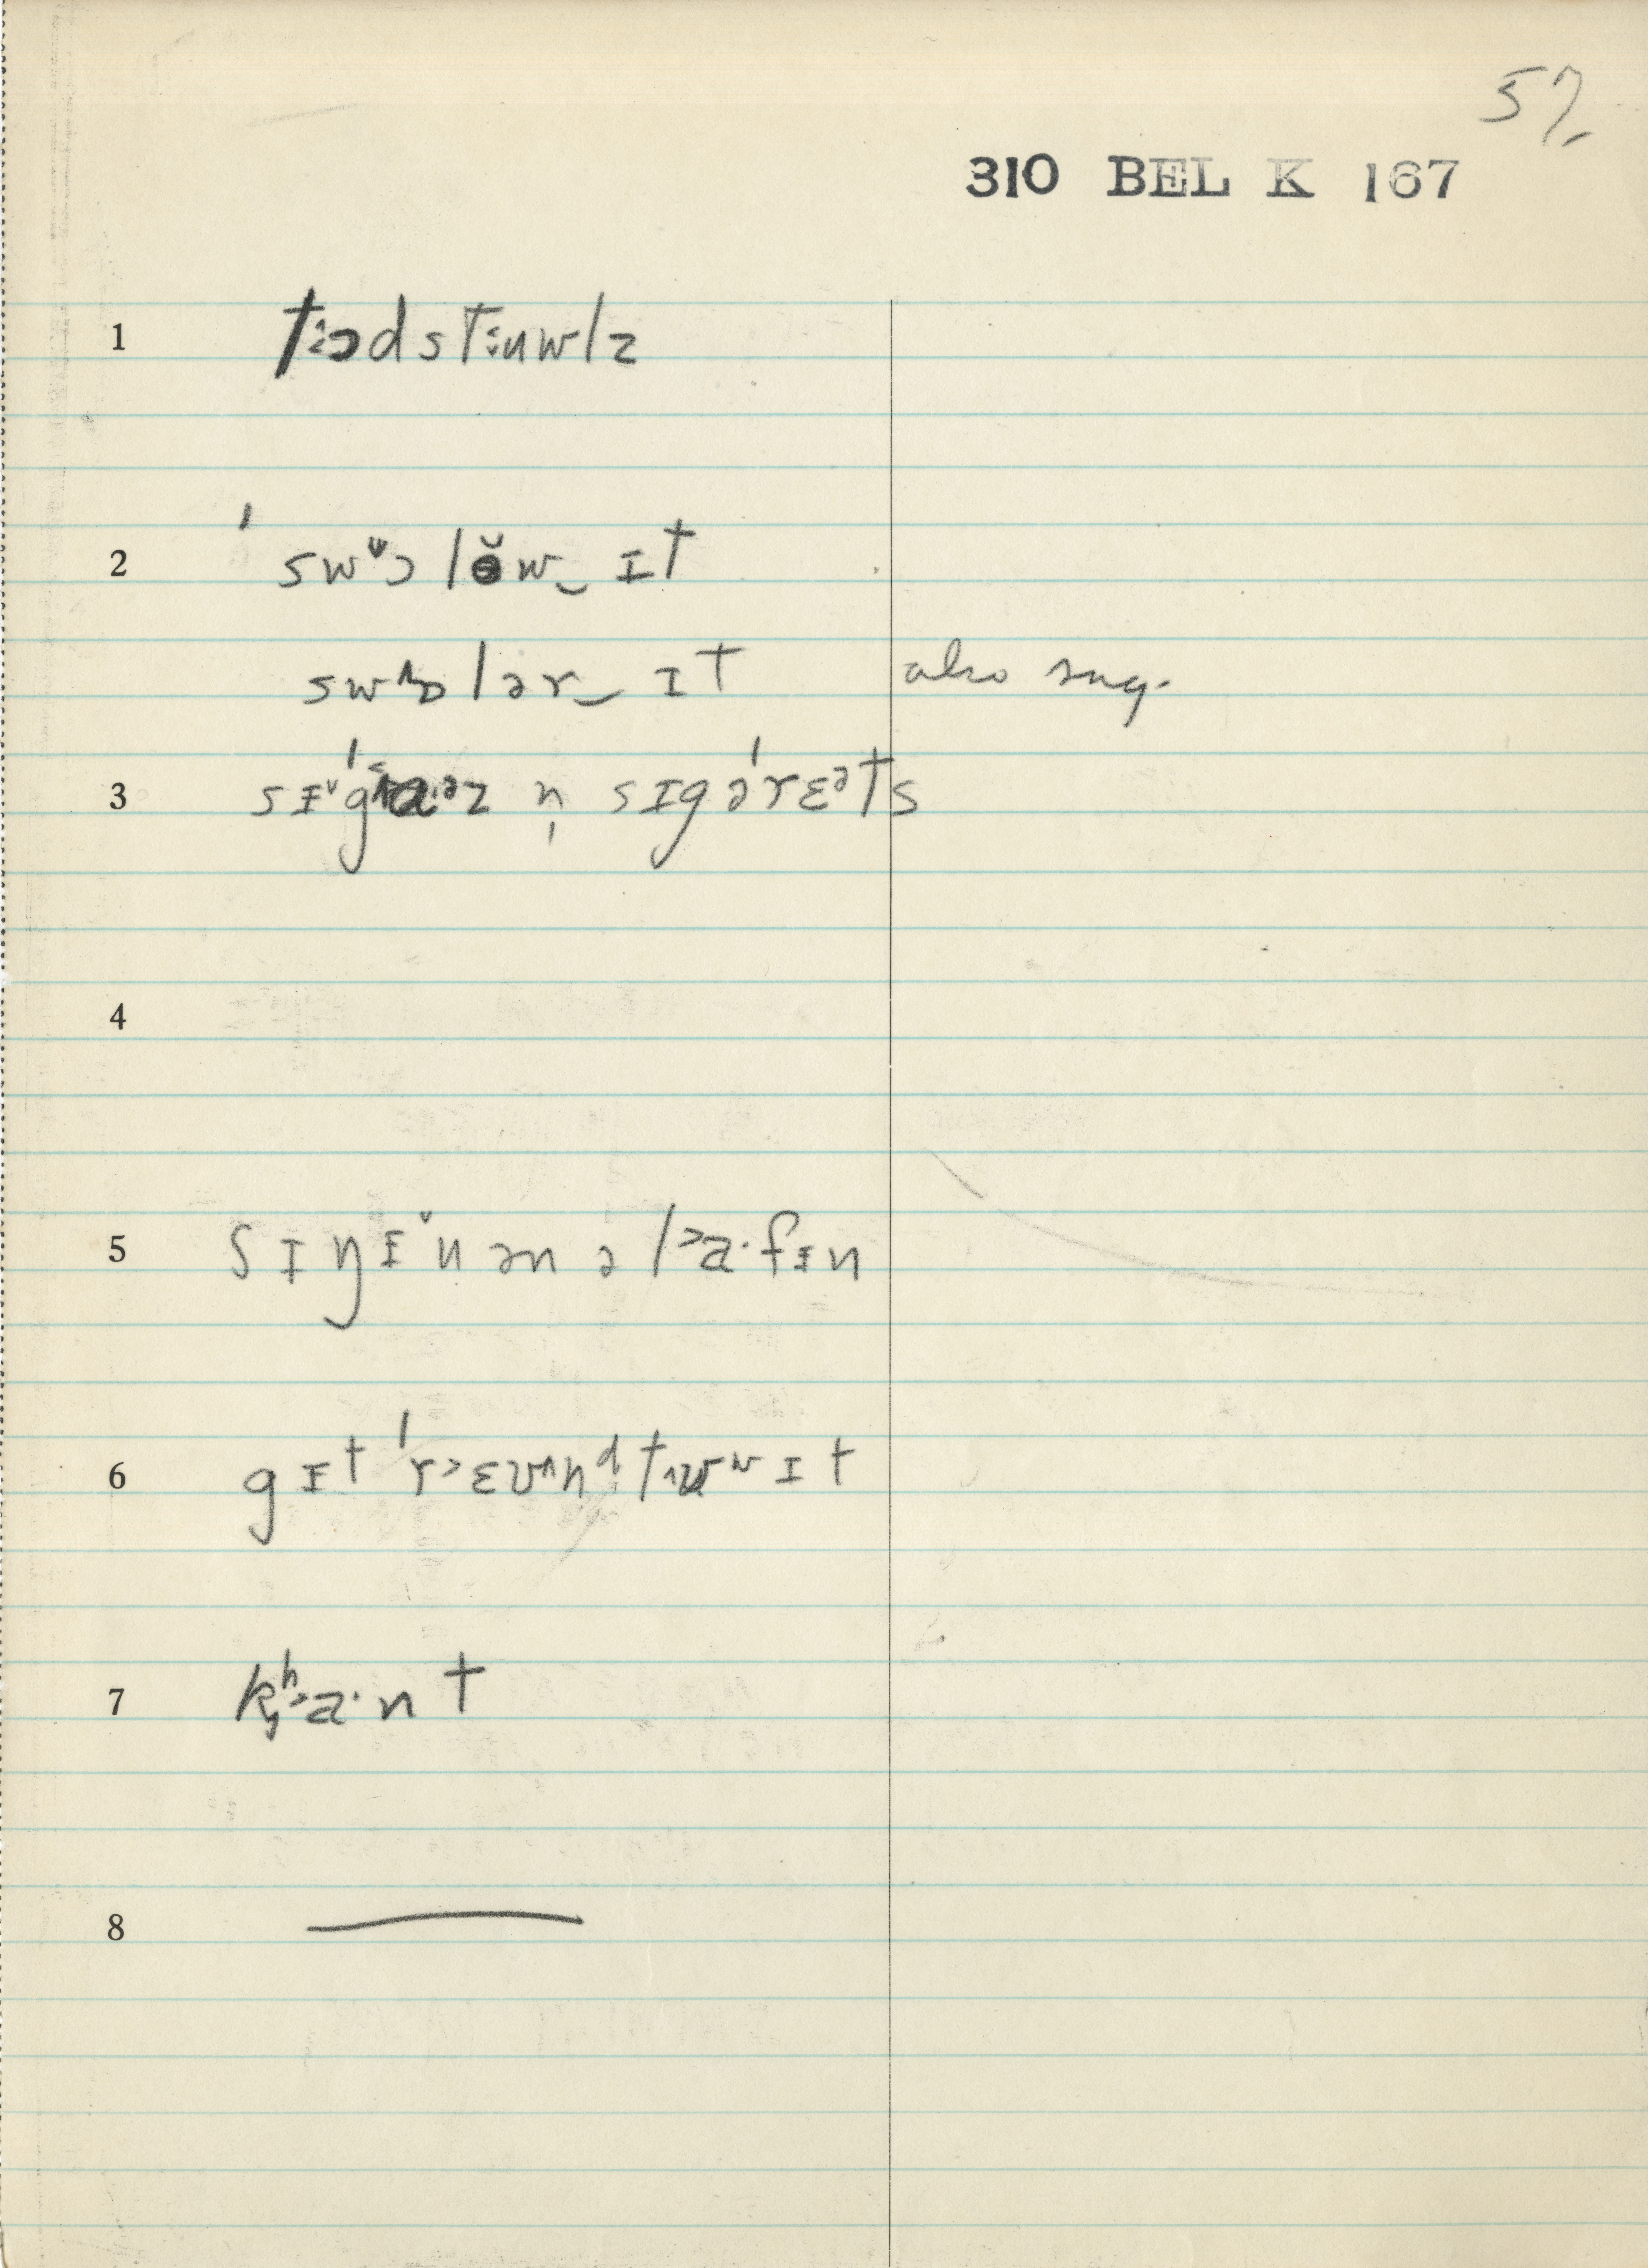 57
310 BEL K 167
1 tɔdstuwlz
2 ˈswɔlɵ̆w‿ ɪt
swɒlər‿ ɪt also sug.
3 sɪˈgaəz n̩ sɪgəˈrɛəts
4
5 sɪŋɪn ən ə la·fɪn
6 gɪt ˈr˃ɛvʌnᵈ tʊʷ ɪt
7 kʰa·nt
8 —